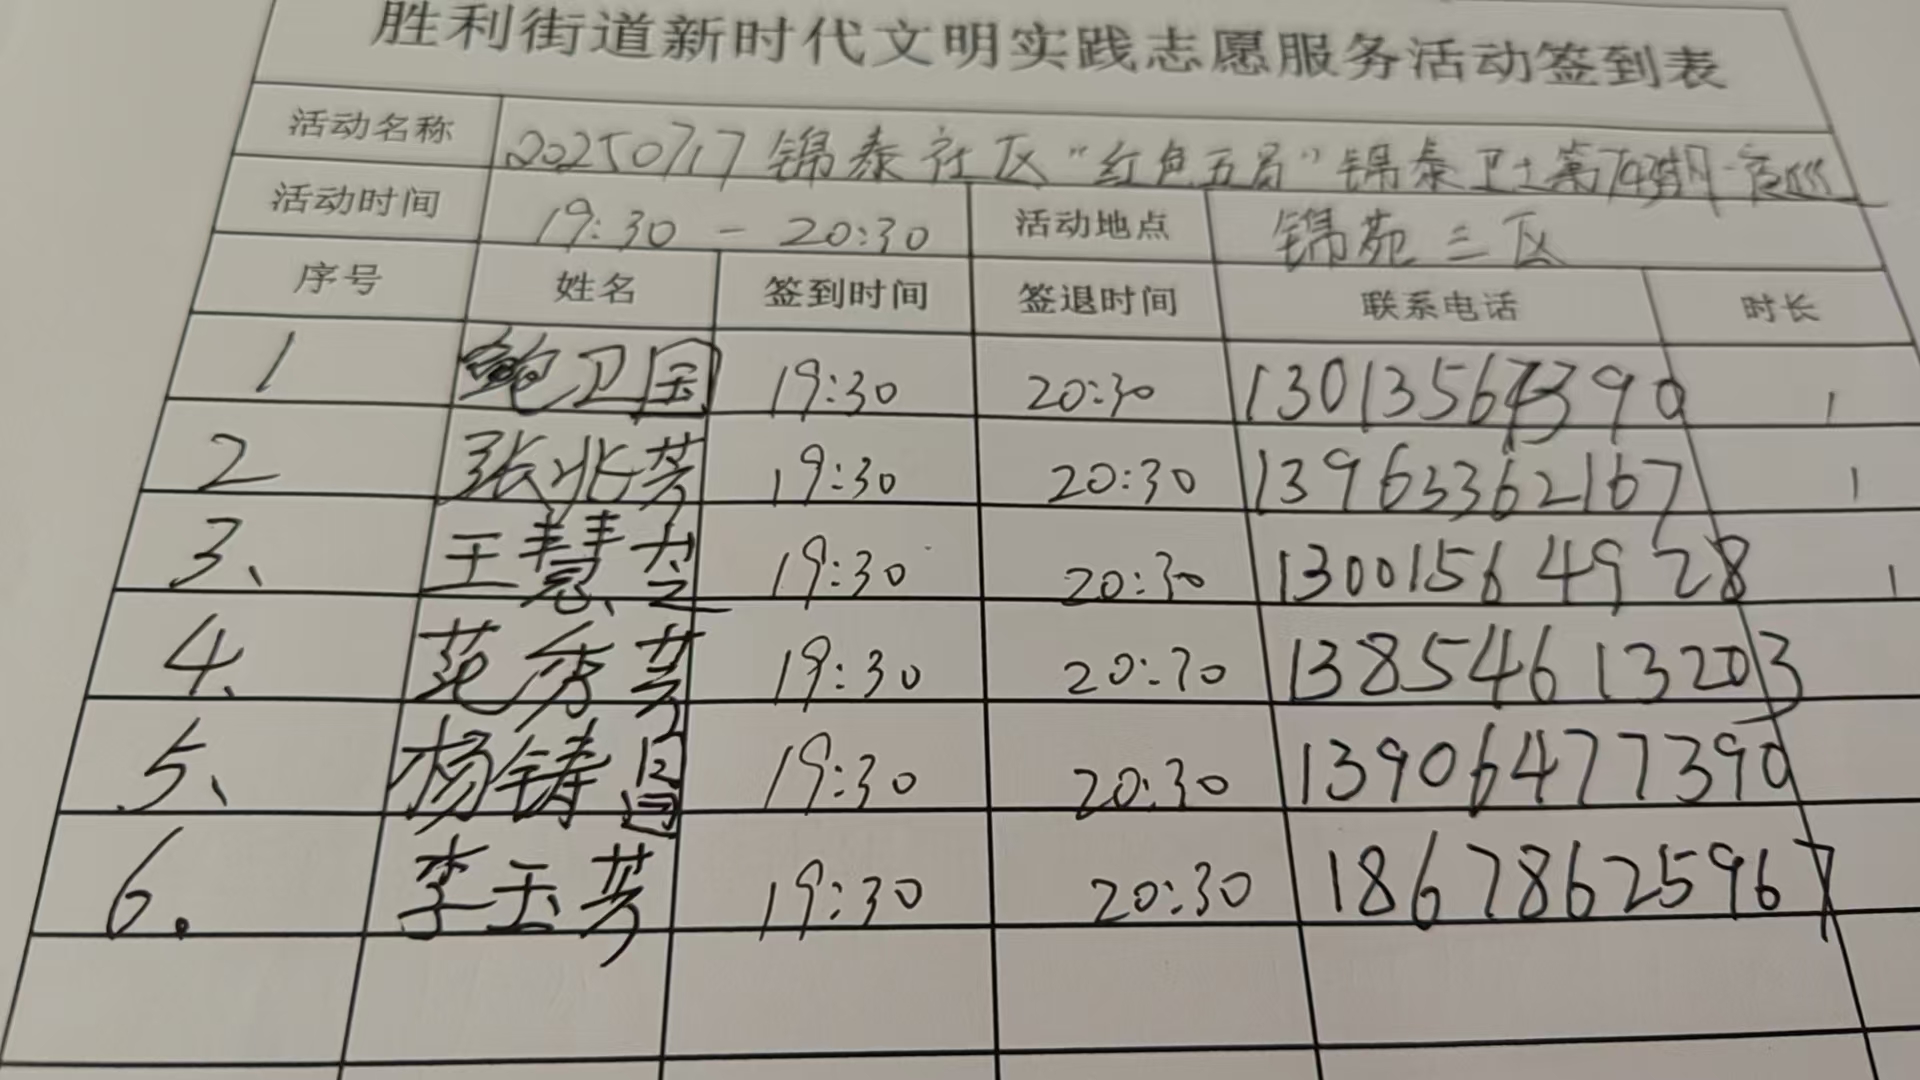 胜利街道新时代文明实践志愿服务活动签到表
活动名称 20250717 锦泰社区“红色五员”锦泰卫士第743期-夜巡
活动时间 19:30 - 20:30 活动地点 锦苑三区
序号 姓名 签到时间 签退时间 联系电话 时长
1 鲍卫国 19:30 20:30 13013564390 1
2 张兆芳 19:30 20:30 13963362167 1
3、 王慧芝 19:30 20:30 13001564928 1
4、 范秀芳 19:30 20:30 13854613203
5、 杨铸昌 19:30 20:30 13906477390
6. 李玉芳 19:30 20:30 18678625967